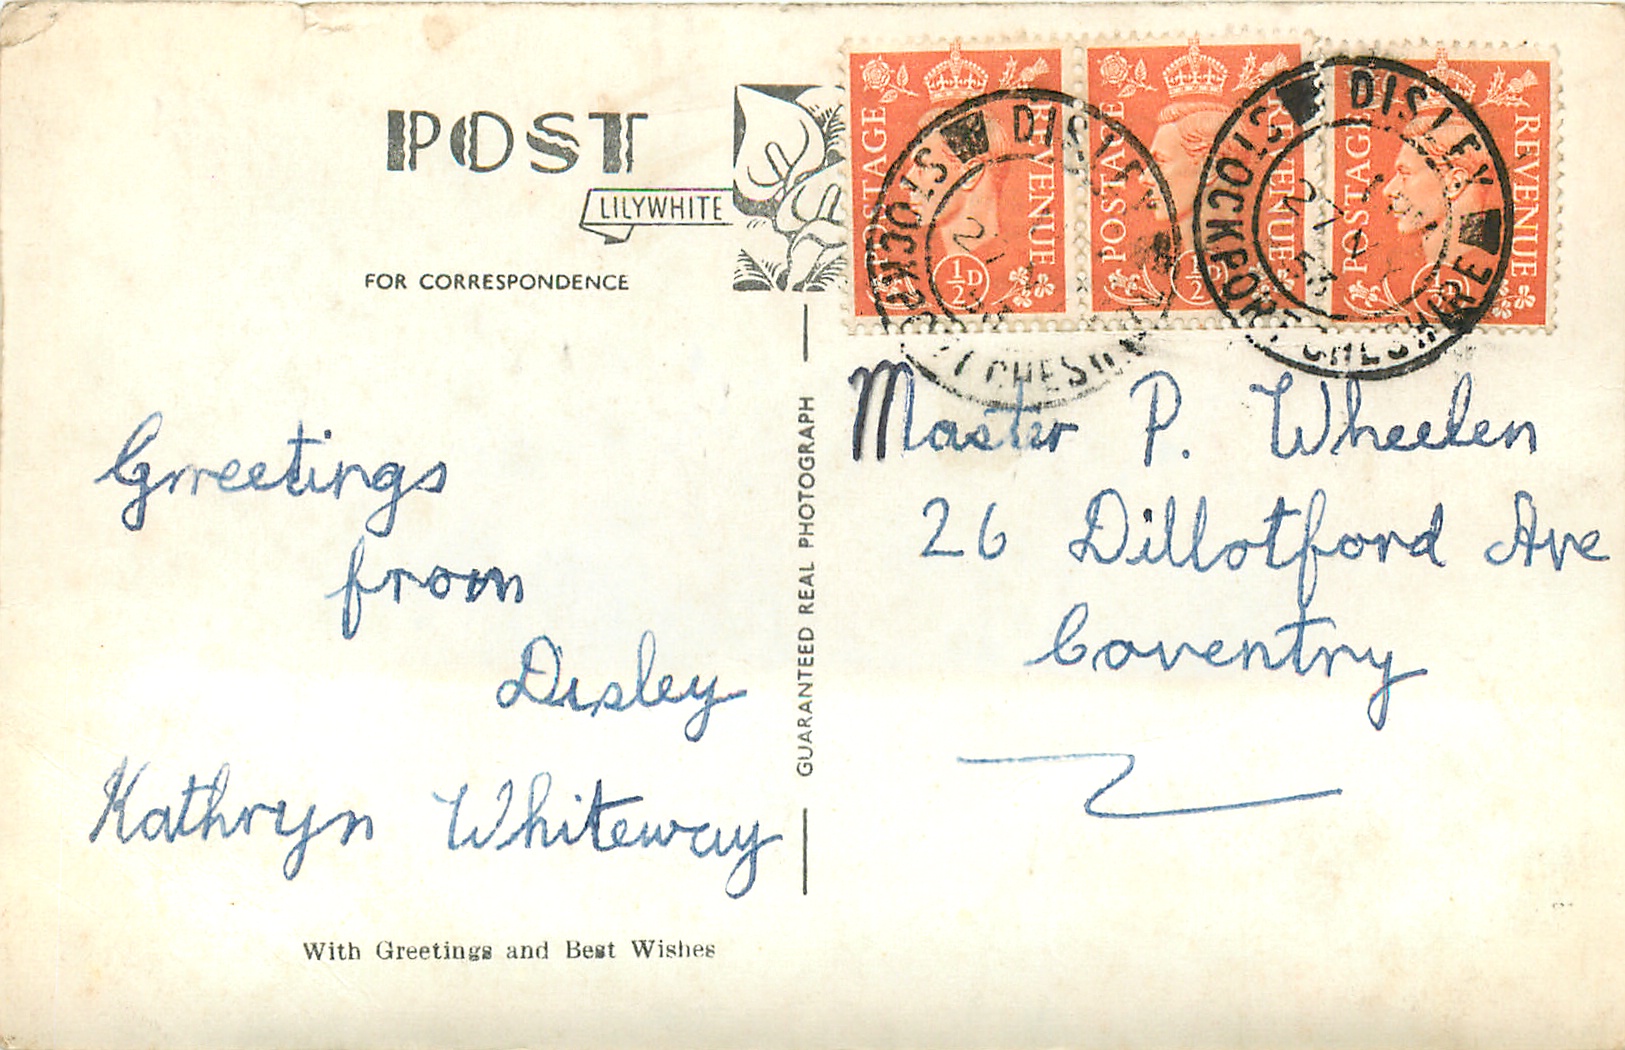 POST
LILYWHITE
FOR CORRESPONDENCE
Greetings
from
Disley
Kathryn Whiteway
With Greetings and Best Wishes
GUARANTEED REAL PHOTOGRAPH
POSTAGE REVENUE
½D
POSTAGE REVENUE
½D
POSTAGE REVENUE
½D
DISLEY
STOCKPORT CHESHIRE
DISLEY
STOCKPORT CHESHIRE
27
53
Master P. Wheelen
26 Dillotford Ave
Coventry